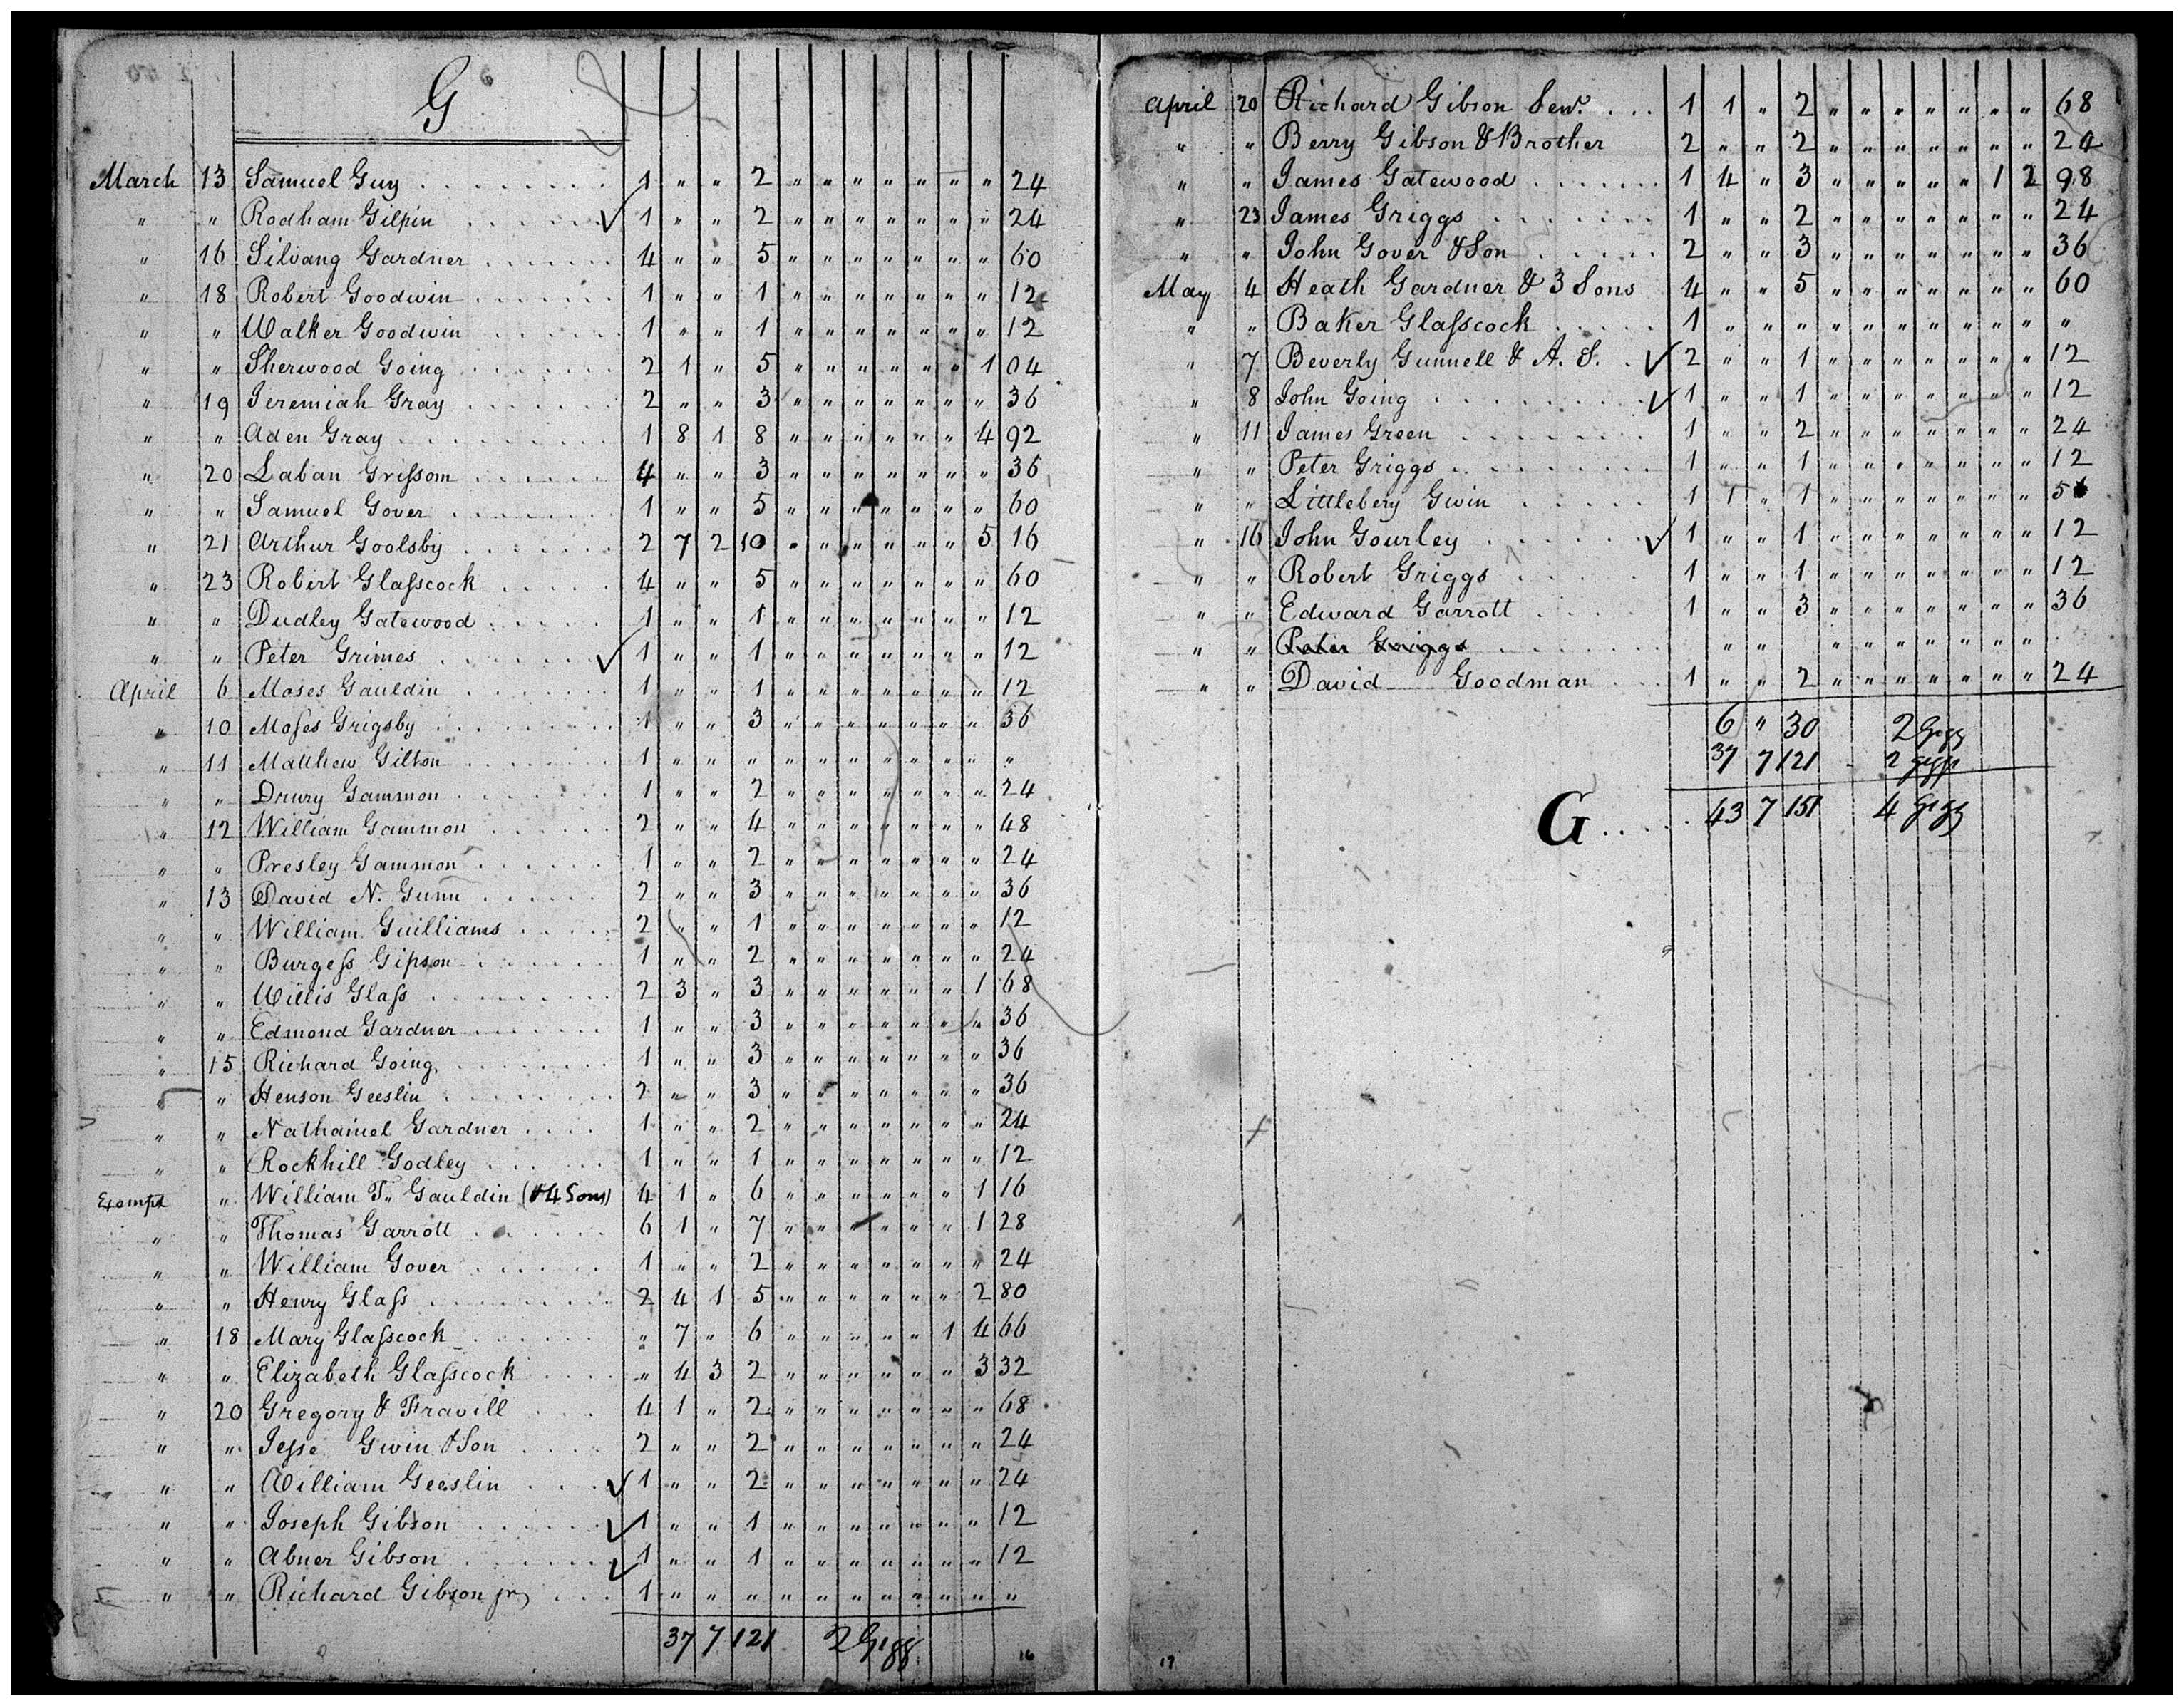 G
March 13 Samuel Guy 1 " " 2 " " " " " " " 24
" " Rodham Gilpin ✓ 1 " " 2 " " " " " " " 24
" 16 Silvang Gardner 4 " " 5 " " " " " " " 60
" 18 Robert Goodwin 1 " " 1 " " " " " " " 12
" " Walker Goodwin 1 " " 1 " " " " " " " 12
" " Sherwood Going 2 1 " 5 " " " " " " 1 04
" 19 Jeremiah Gray 2 " " 3 " " " " " " " 36
" " Aden Gray 1 8 1 8 " " " " " " 4 92
" 20 Laban Grissom 4 " " 3 " " " " " " " 36
" " Samuel Gover 1 " " 5 " " " " " " " 60
" 21 Arthur Goolsby 2 7 2 10 " " " " " " 5 16
" 23 Robert Glasscock 4 " " 5 " " " " " " " 60
" " Dudley Gatewood 1 " " 1 " " " " " " " 12
" " Peter Grimes ✓ 1 " " 1 " " " " " " " 12
April 6 Moses Gauldin 1 " " 1 " " " " " " " 12
" 10 Moses Grigsby 1 " " 3 " " " " " " " 36
" 11 Matthew Gilton 1 " " " " " " " " " " "
" " Drury Gammon 1 " " 2 " " " " " " " 24
" 12 William Gammon 2 " " 4 " " " " " " " 48
" " Presley Gammon 1 " " 2 " " " " " " " 24
" 13 David N. Gunn 2 " " 3 " " " " " " " 36
" " William Guilliams 2 " " 1 " " " " " " " 12
" " Burgess Gipson 1 " " 2 " " " " " " " 24
" " Willis Glass 2 3 " 3 " " " " " " 1 68
" " Edmond Gardner 1 " " 3 " " " " " " " 36
" 15 Richard Going 1 " " 3 " " " " " " " 36
" " Henson Geeslin 2 " " 3 " " " " " " " 36
" " Nathainel Gardner 1 " " 2 " " " " " " " 24
" " Rockhill Godley 1 " " 1 " " " " " " " 12
Exempt " William T. Gauldin (& 4 Sons) 4 1 " 6 " " " " " " 1 16
" " Thomas Garrott 6 1 " 7 " " " " " " 1 28
" " William Gover 1 " " 2 " " " " " " " 24
" " Henry Glass 2 4 1 5 " " " " " " 2 80
" 18 Mary Glasscock " 7 " 6 " " " " " 1 4 66
" " Elizabeth Glasscock " 4 3 2 " " " " " " 3 32
" 20 Gregory & Fravill 4 1 " 2 " " " " " " " 68
" " Jesse Gwin & Son 2 " " 2 " " " " " " " 24
" " William Geeslin ✓ 1 " " 2 " " " " " " " 24
" " Joseph Gibson ✓ 1 " " 1 " " " " " " " 12
" " Abner Gibson ✓ 1 " " 1 " " " " " " " 12
" " Richard Gibson jr 1 " " " " " " " " " " "
37 7 121 2 Gigg
16
April 20 Richard Gibson Senr. 1 1 " 2 " " " " " " " 68
" " Berry Gibson & Brother 2 " " 2 " " " " " " " 24
" " James Gatewood 1 4 " 3 " " " " " 1 2 98
" 23 James Griggs 1 " " 2 " " " " " " " 24
" " John Gover & Son 2 " " 3 " " " " " " " 36
May 4 Heath Gardner & 3 Sons 4 " " 5 " " " " " " " 60
" " Baker Glasscock 1 " " " " " " " " " " "
" 7 Beverly Gunnell & A. S. ✓ 2 " " 1 " " " " " " " 12
" 8 John Going ✓ 1 " " 1 " " " " " " " 12
" 11 James Green 1 " " 2 " " " " " " " 24
" " Peter Griggs 1 " " 1 " " " " " " " 12
" " Littlebery Gwin 1 1 " 1 " " " " " " " 56
" 16 John Gourley ✓ 1 " " 1 " " " " " " " 12
" " Robert Griggs 1 " " 1 " " " " " " " 12
" " Edward Garrott 1 " " 3 " " " " " " " 36
" " Peter Griggs " " " " " " " " "
" " David Goodman 1 " " 2 " " " " " " " 24
6 " 30 2 Gigg
37 7 121 2 gigg
G 43 7 151 4 gigg
17